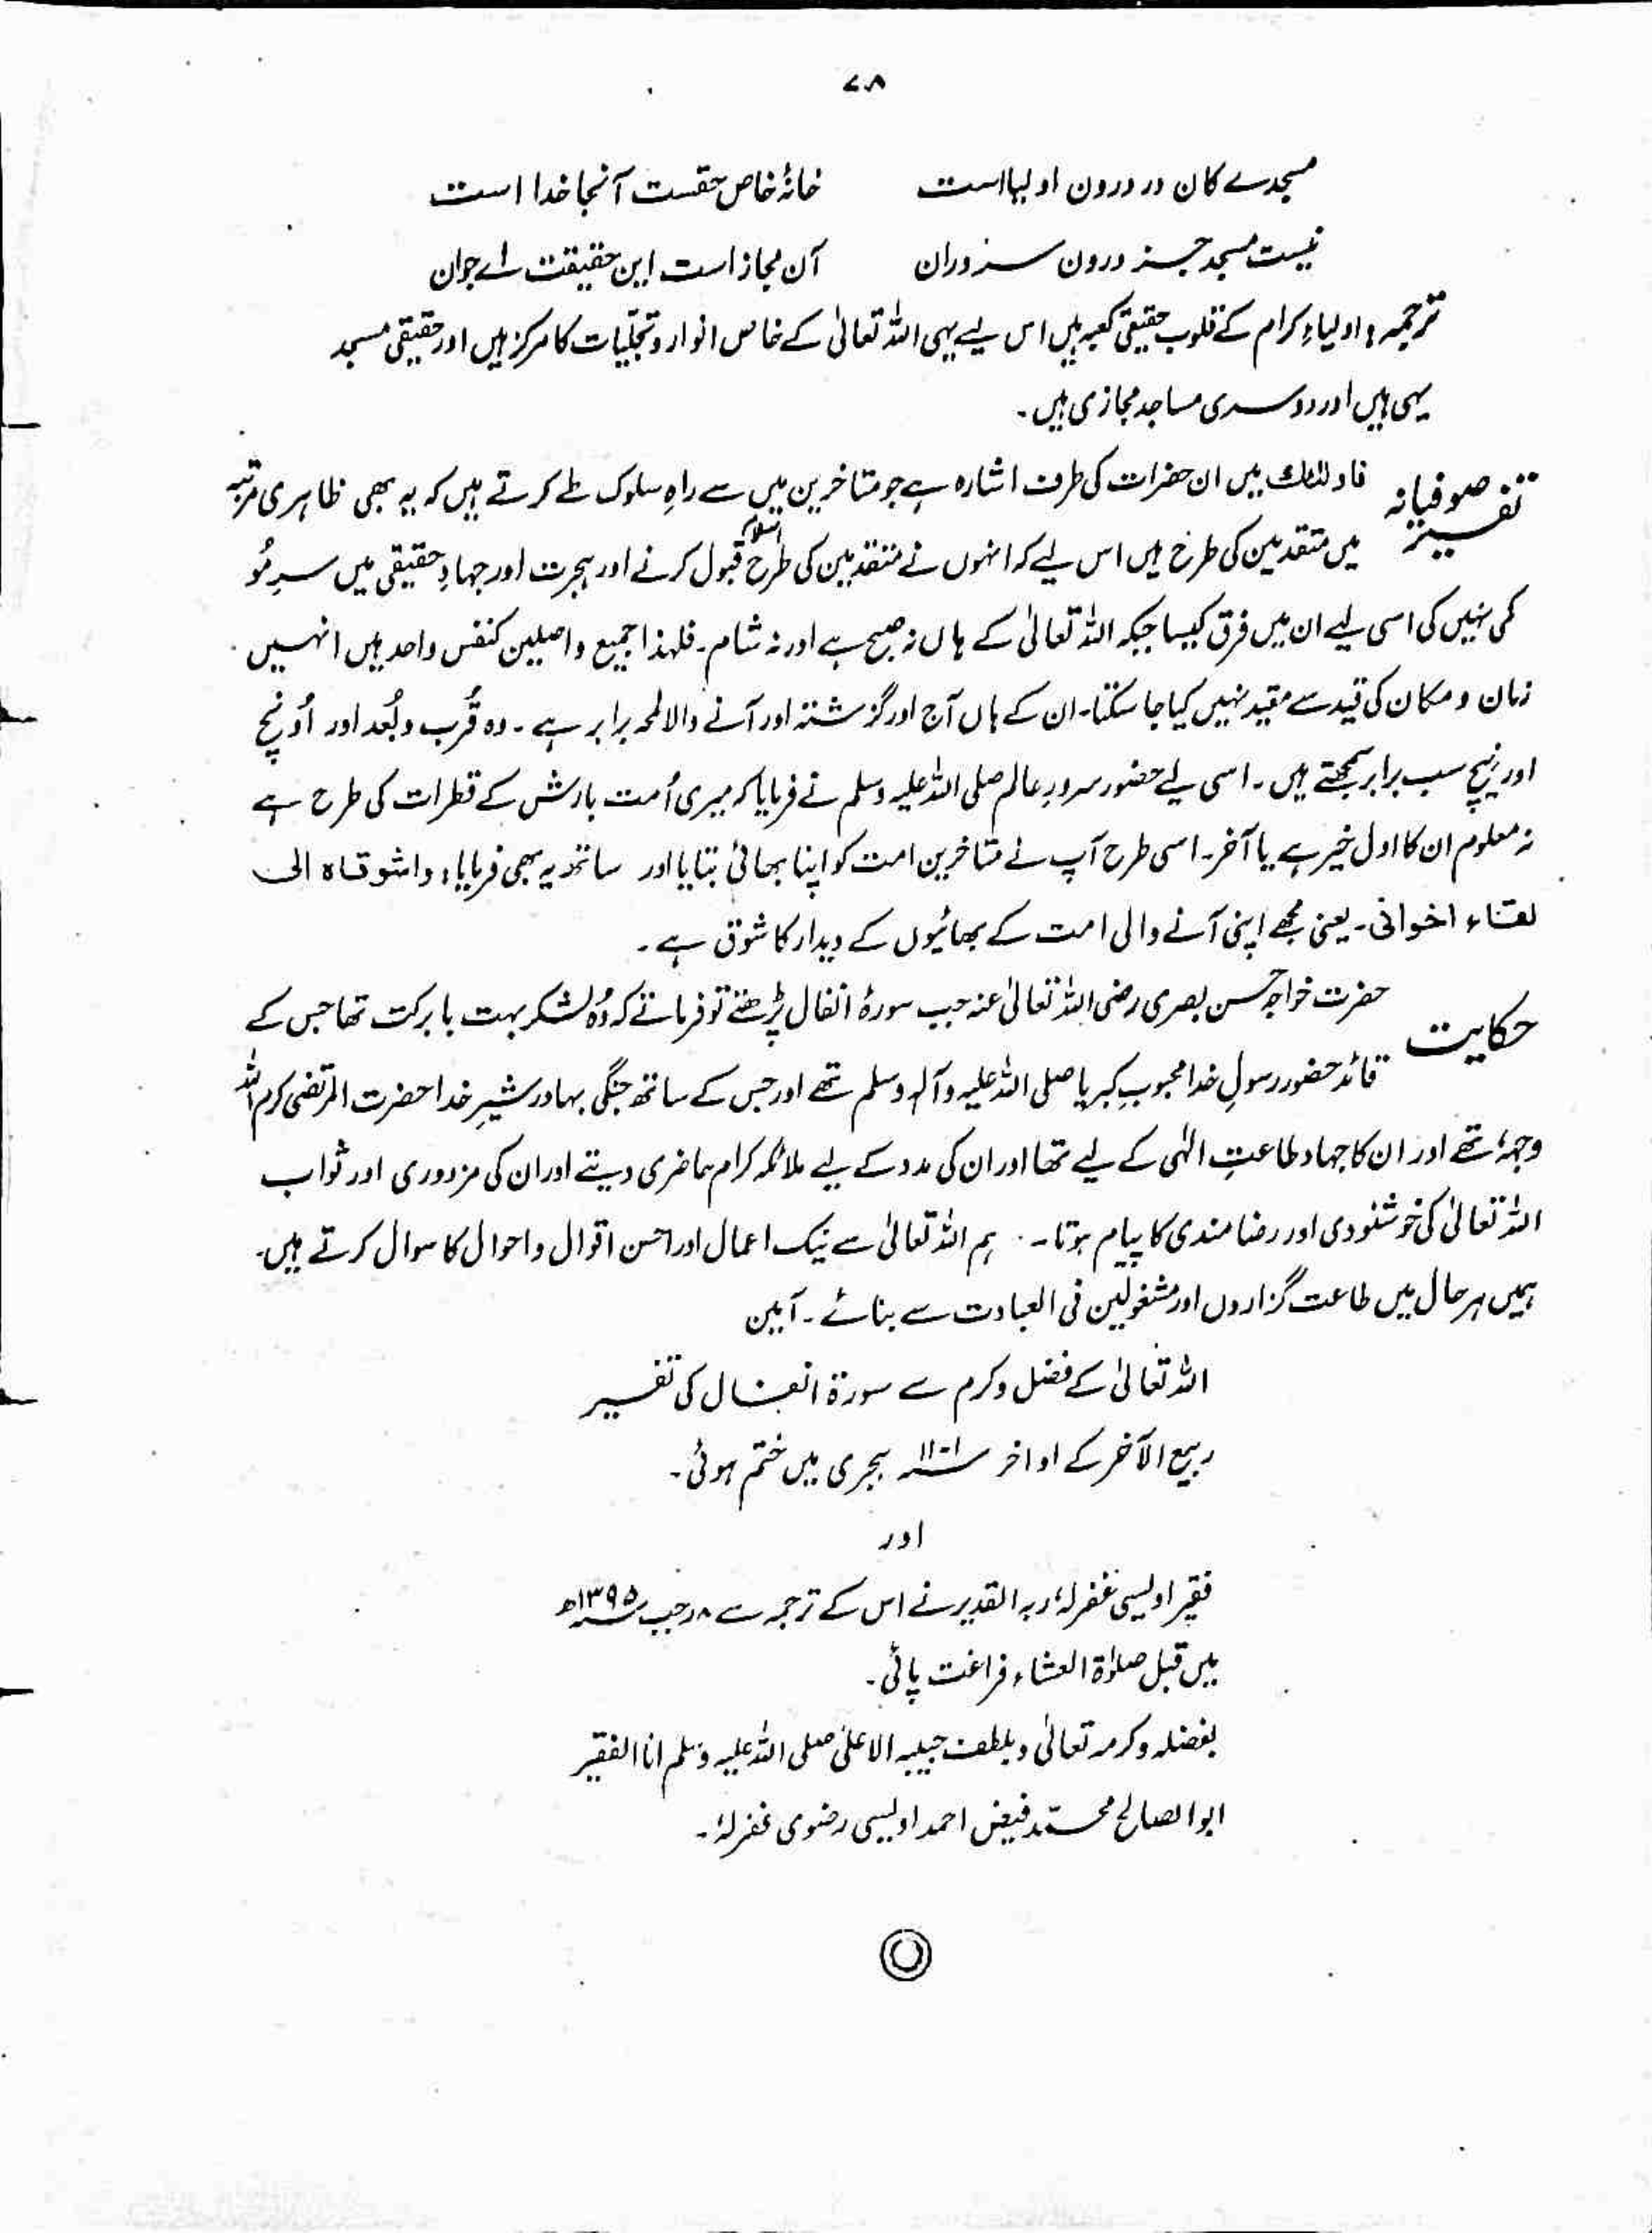 ۷۸
مسجدے کان در درون اولیااست خانۂ خاص حقست آنجا خدا است
نیست مسجد جز درون سروران آن مجاز است این حقیقت اے جوان
ترجمہ: اولیاءِ کرام کے قلوب حقیقی کعبہ ہیں اس لیے یہی اللہ تعالیٰ کے خاص انوار و تجلّیات کا مرکز ہیں اور حقیقی مسجد
یہی ہیں اور دوسری مساجد مجازی ہیں۔
تفسیر صوفیانہ فاولئک میں ان حضرات کی طرف اشارہ ہے جو متاخرین میں سے راہِ سلوک طے کرتے ہیں کہ یہ بھی ظاہری مرتبہ
میں متقدمین کی طرح ہیں اس لیے کہ انہوں نے متقدمین کی طرح اسلام قبول کرنے اور ہجرت اور جہادِ حقیقی میں سرِمُو
کمی نہیں کی اسی لیے ان میں فرق کیسا جبکہ اللہ تعالیٰ کے ہاں نہ صبح ہے اور نہ شام۔ فلہذا جمیع واصلین کنفس واحد ہیں انہیں
زمان و مکان کی قید سے مقید نہیں کیا جا سکتا۔ ان کے ہاں آج اور گزشتہ اور آنے والا لمحہ برابر ہے۔ وہ قُرب و بُعد اور اُونچ
اور نیچ سب برابر سمجھتے ہیں۔ اسی لیے حضور سرورِ عالم صلی اللہ علیہ وسلم نے فرمایا کہ میری اُمت بارش کے قطرات کی طرح ہے
نہ معلوم ان کا اول خیر ہے یا آخر۔ اسی طرح آپ نے متاخرین امت کو اپنا بھائی بتایا اور ساتھ یہ بھی فرمایا: واشوقاہ الی
لقاء اخوانی۔ یعنی مجھے اپنی آنے والی امت کے بھائیوں کے دیدار کا شوق ہے۔
حکایت حضرت خواجہ حسن بصری رضی اللہ تعالیٰ عنہ جب سورۂ انفال پڑھتے تو فرماتے کہ وُہ لشکر بہت بابرکت تھا جس کے
قائد حضور رسولِ خدا محبوبِ کبریا صلی اللہ علیہ وآلہ وسلم تھے اور جس کے ساتھ جنگی بہادر شیرِ خدا حضرت المرتضی کرم اللہ
وجہہٗ تھے اور ان کا جہاد طاعتِ الٰہی کے لیے تھا اور ان کی مدد کے لیے ملائکہ کرام حاضری دیتے اور ان کی مزدوری اور ثواب
اللہ تعالیٰ کی خوشنودی اور رضامندی کا پیام ہوتا۔ ہم اللہ تعالیٰ سے نیک اعمال اور احسن اقوال و احوال کا سوال کرتے ہیں۔
ہمیں ہر حال میں طاعت گزاروں اور مشغولین فی العبادت سے بنائے۔ آمین
اللہ تعالیٰ کے فضل و کرم سے سورۃ انفال کی تفسیر
ربیع الآخر کے اواخر سنہ ۱۱۰۱ ہجری میں ختم ہوئی۔
اور
فقیر اویسی غفرلہٗ ربہ القدیر نے اس کے ترجمہ سے ۸ رجب سنہ ۱۳۹۵ھ
میں قبل صلوٰۃ العشاء فراغت پائی۔
بفضلہ وکرمہ تعالیٰ وبلطف حبیبہ الاعلیٰ صلی اللہ علیہ وسلم انا الفقیر
ابوالصالح محمّد فیض احمد اویسی رضوی غفرلہٗ۔